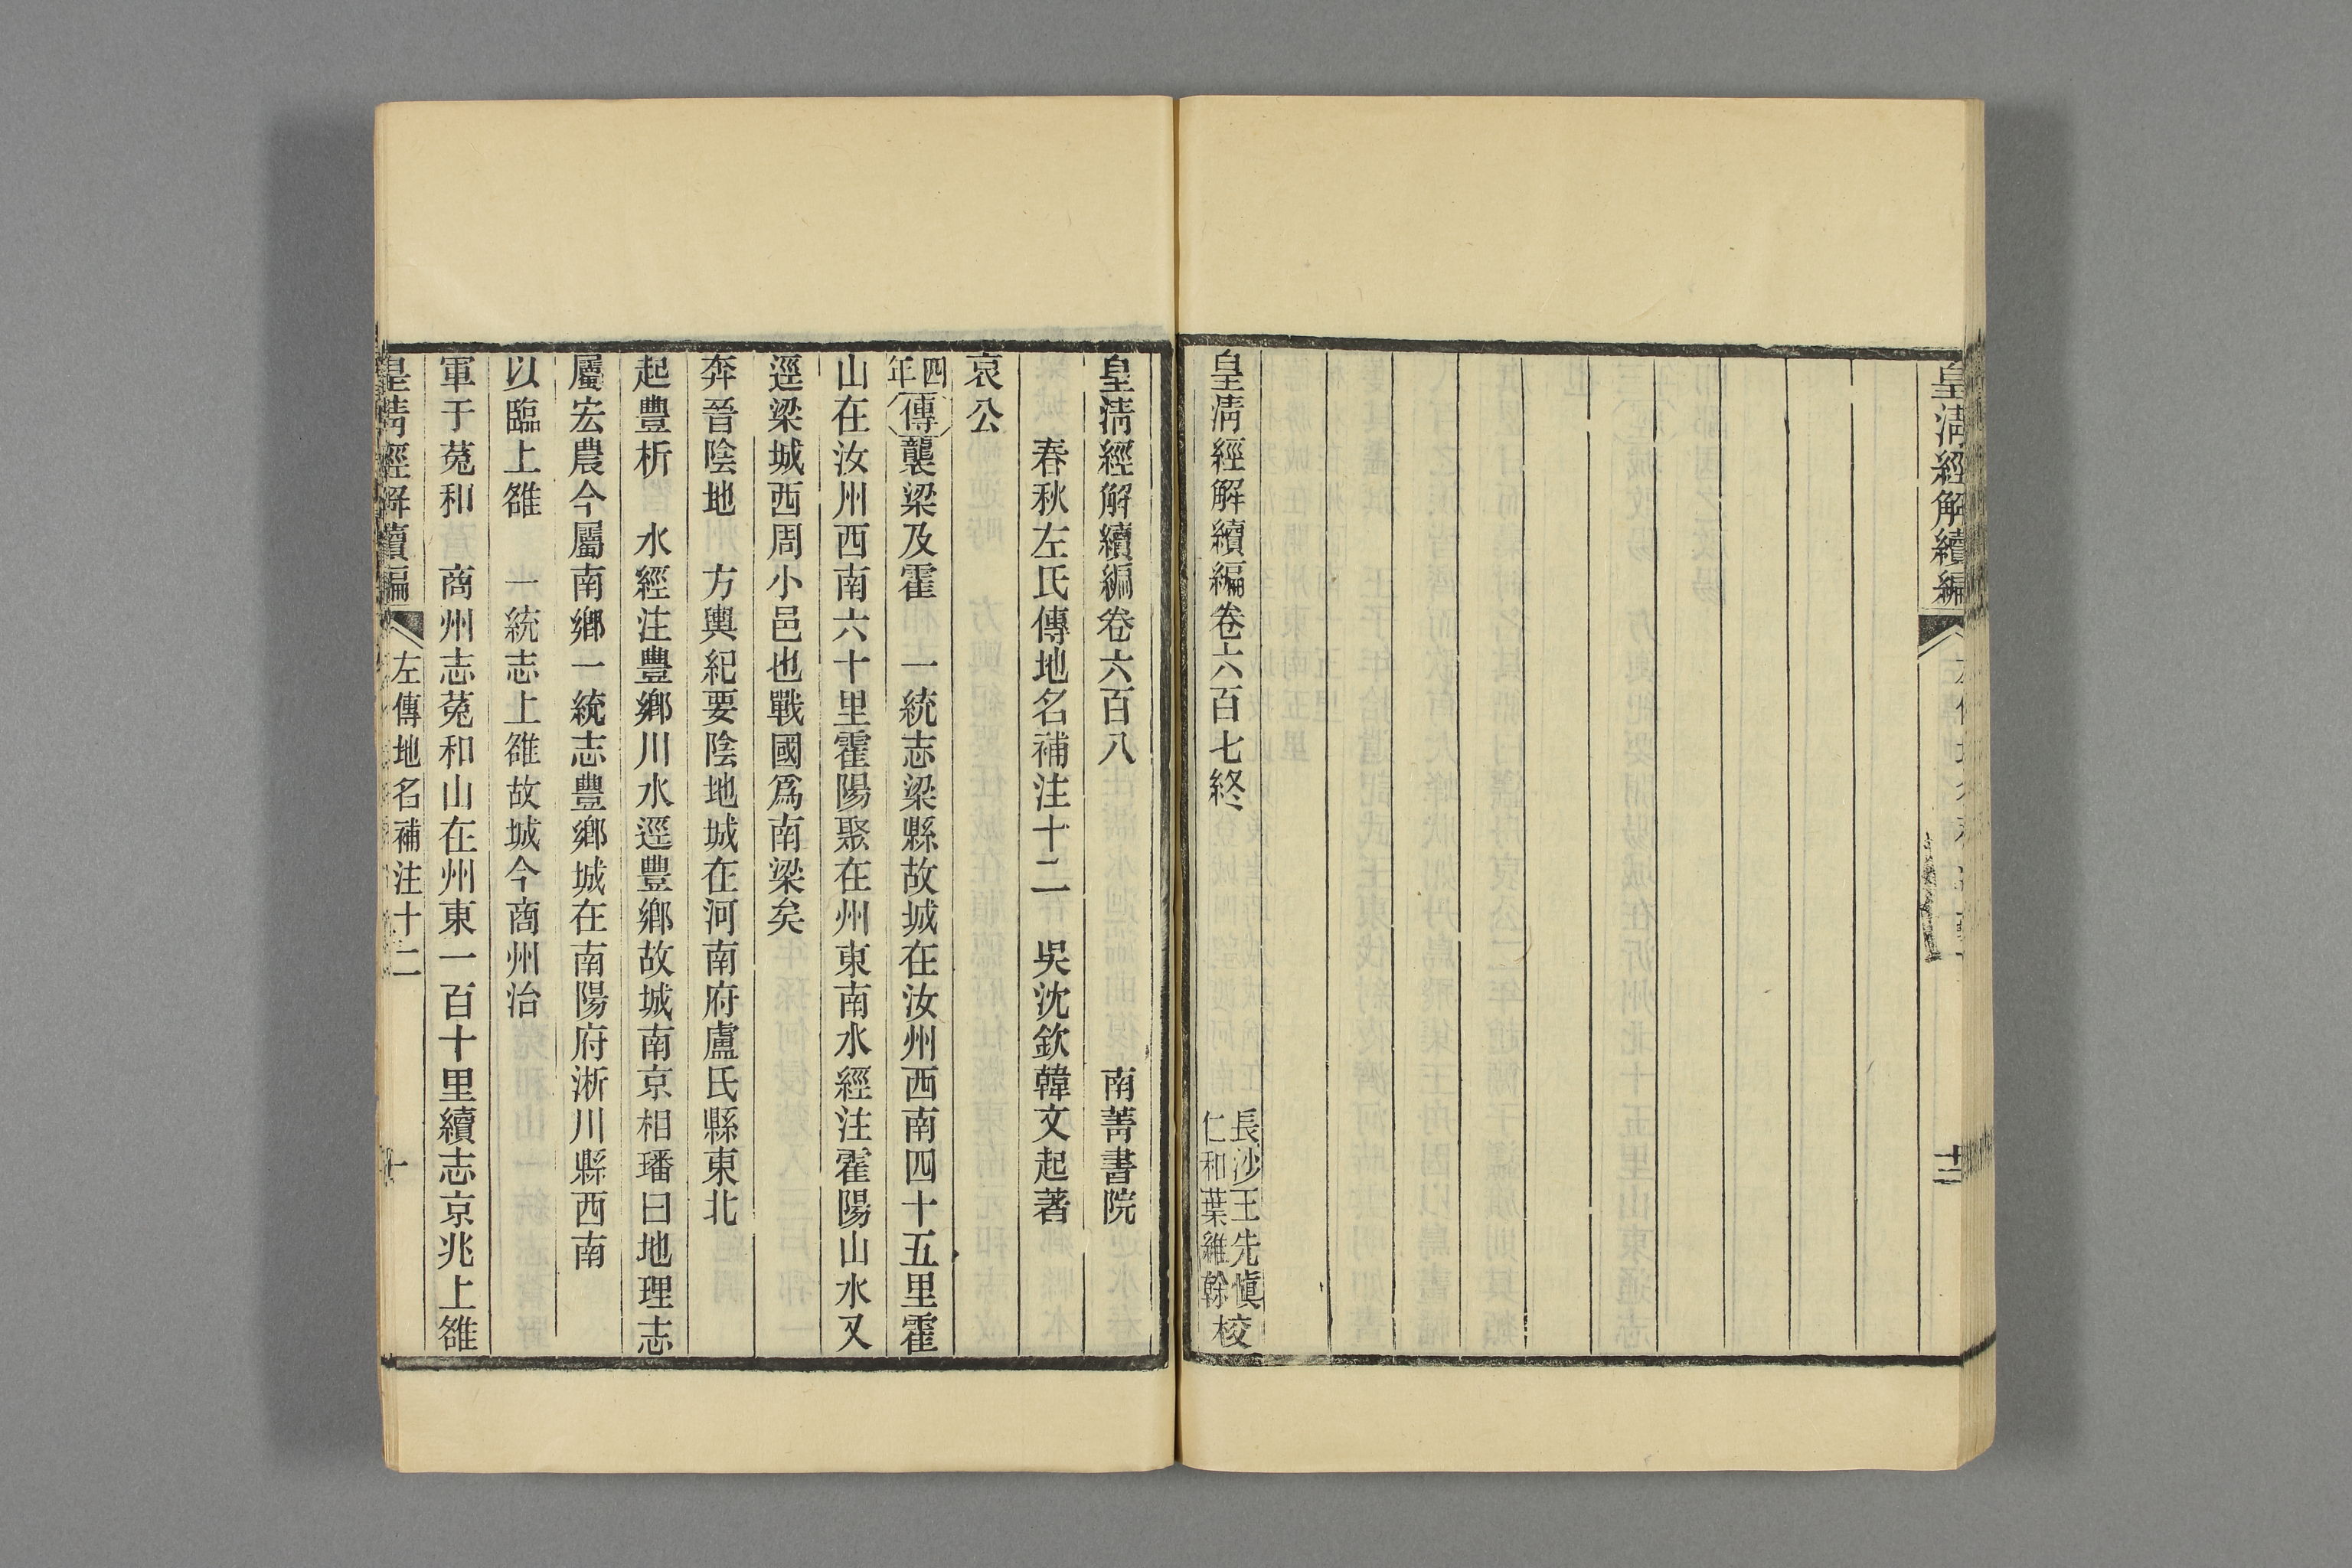 皇清經解續編
十二
皇清經解續編卷六百七終
長沙王先愼
仁和葉維幹校
皇清經解續編卷六百八 南菁書院
春秋左氏傳地名補注十二 吳沈欽韓文起著
哀公
四年傳襲梁及霍 一統志梁縣故城在汝州西南四十五里霍
山在汝州西南六十里霍陽聚在州東南水經注霍陽山水又
逕梁城西周小邑也戰國爲南梁矣
奔晉陰地 方輿紀要陰地城在河南府盧氏縣東北
起豐析 水經注豐鄉川水逕豐鄉故城南京相璠曰地理志
屬宏農今屬南鄉一統志豐鄉城在南陽府淅川縣西南
以臨上雒 一統志上雒故城今商州治
軍于菟和 商州志菟和山在州東一百十里續志京兆上雒
皇清經解續編 左傳地名補注十二 一